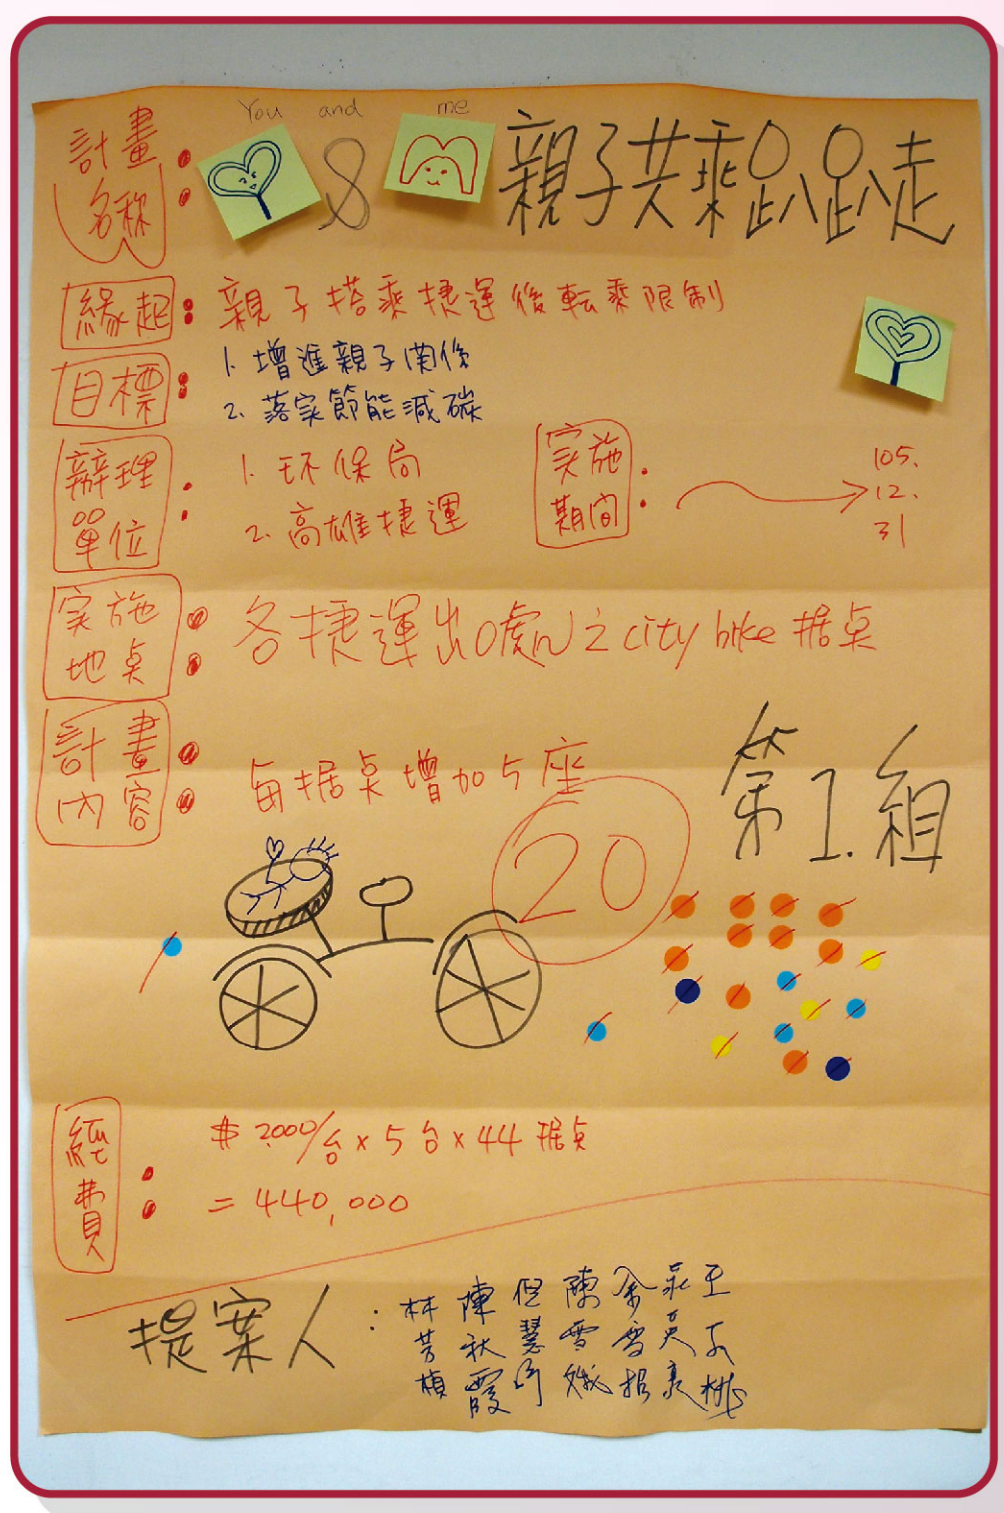 You and me
計畫名称：
& 親子共乘趴趴走
緣起：親子搭乘捷運後転乘限制
目標：1. 增進親子関係
2. 落実節能減碳
辦理單位：1. 环保局
2. 高雄捷運
実施期間：→ 105.
12.
31
実施地点：各捷運出口處之city bike据点
計畫內容：每据点增加5座
第1.組
20
經費：$2000/台×5台×44据点
=440,000
提案人：
林芳楨
陳秋霞
陳雪娥